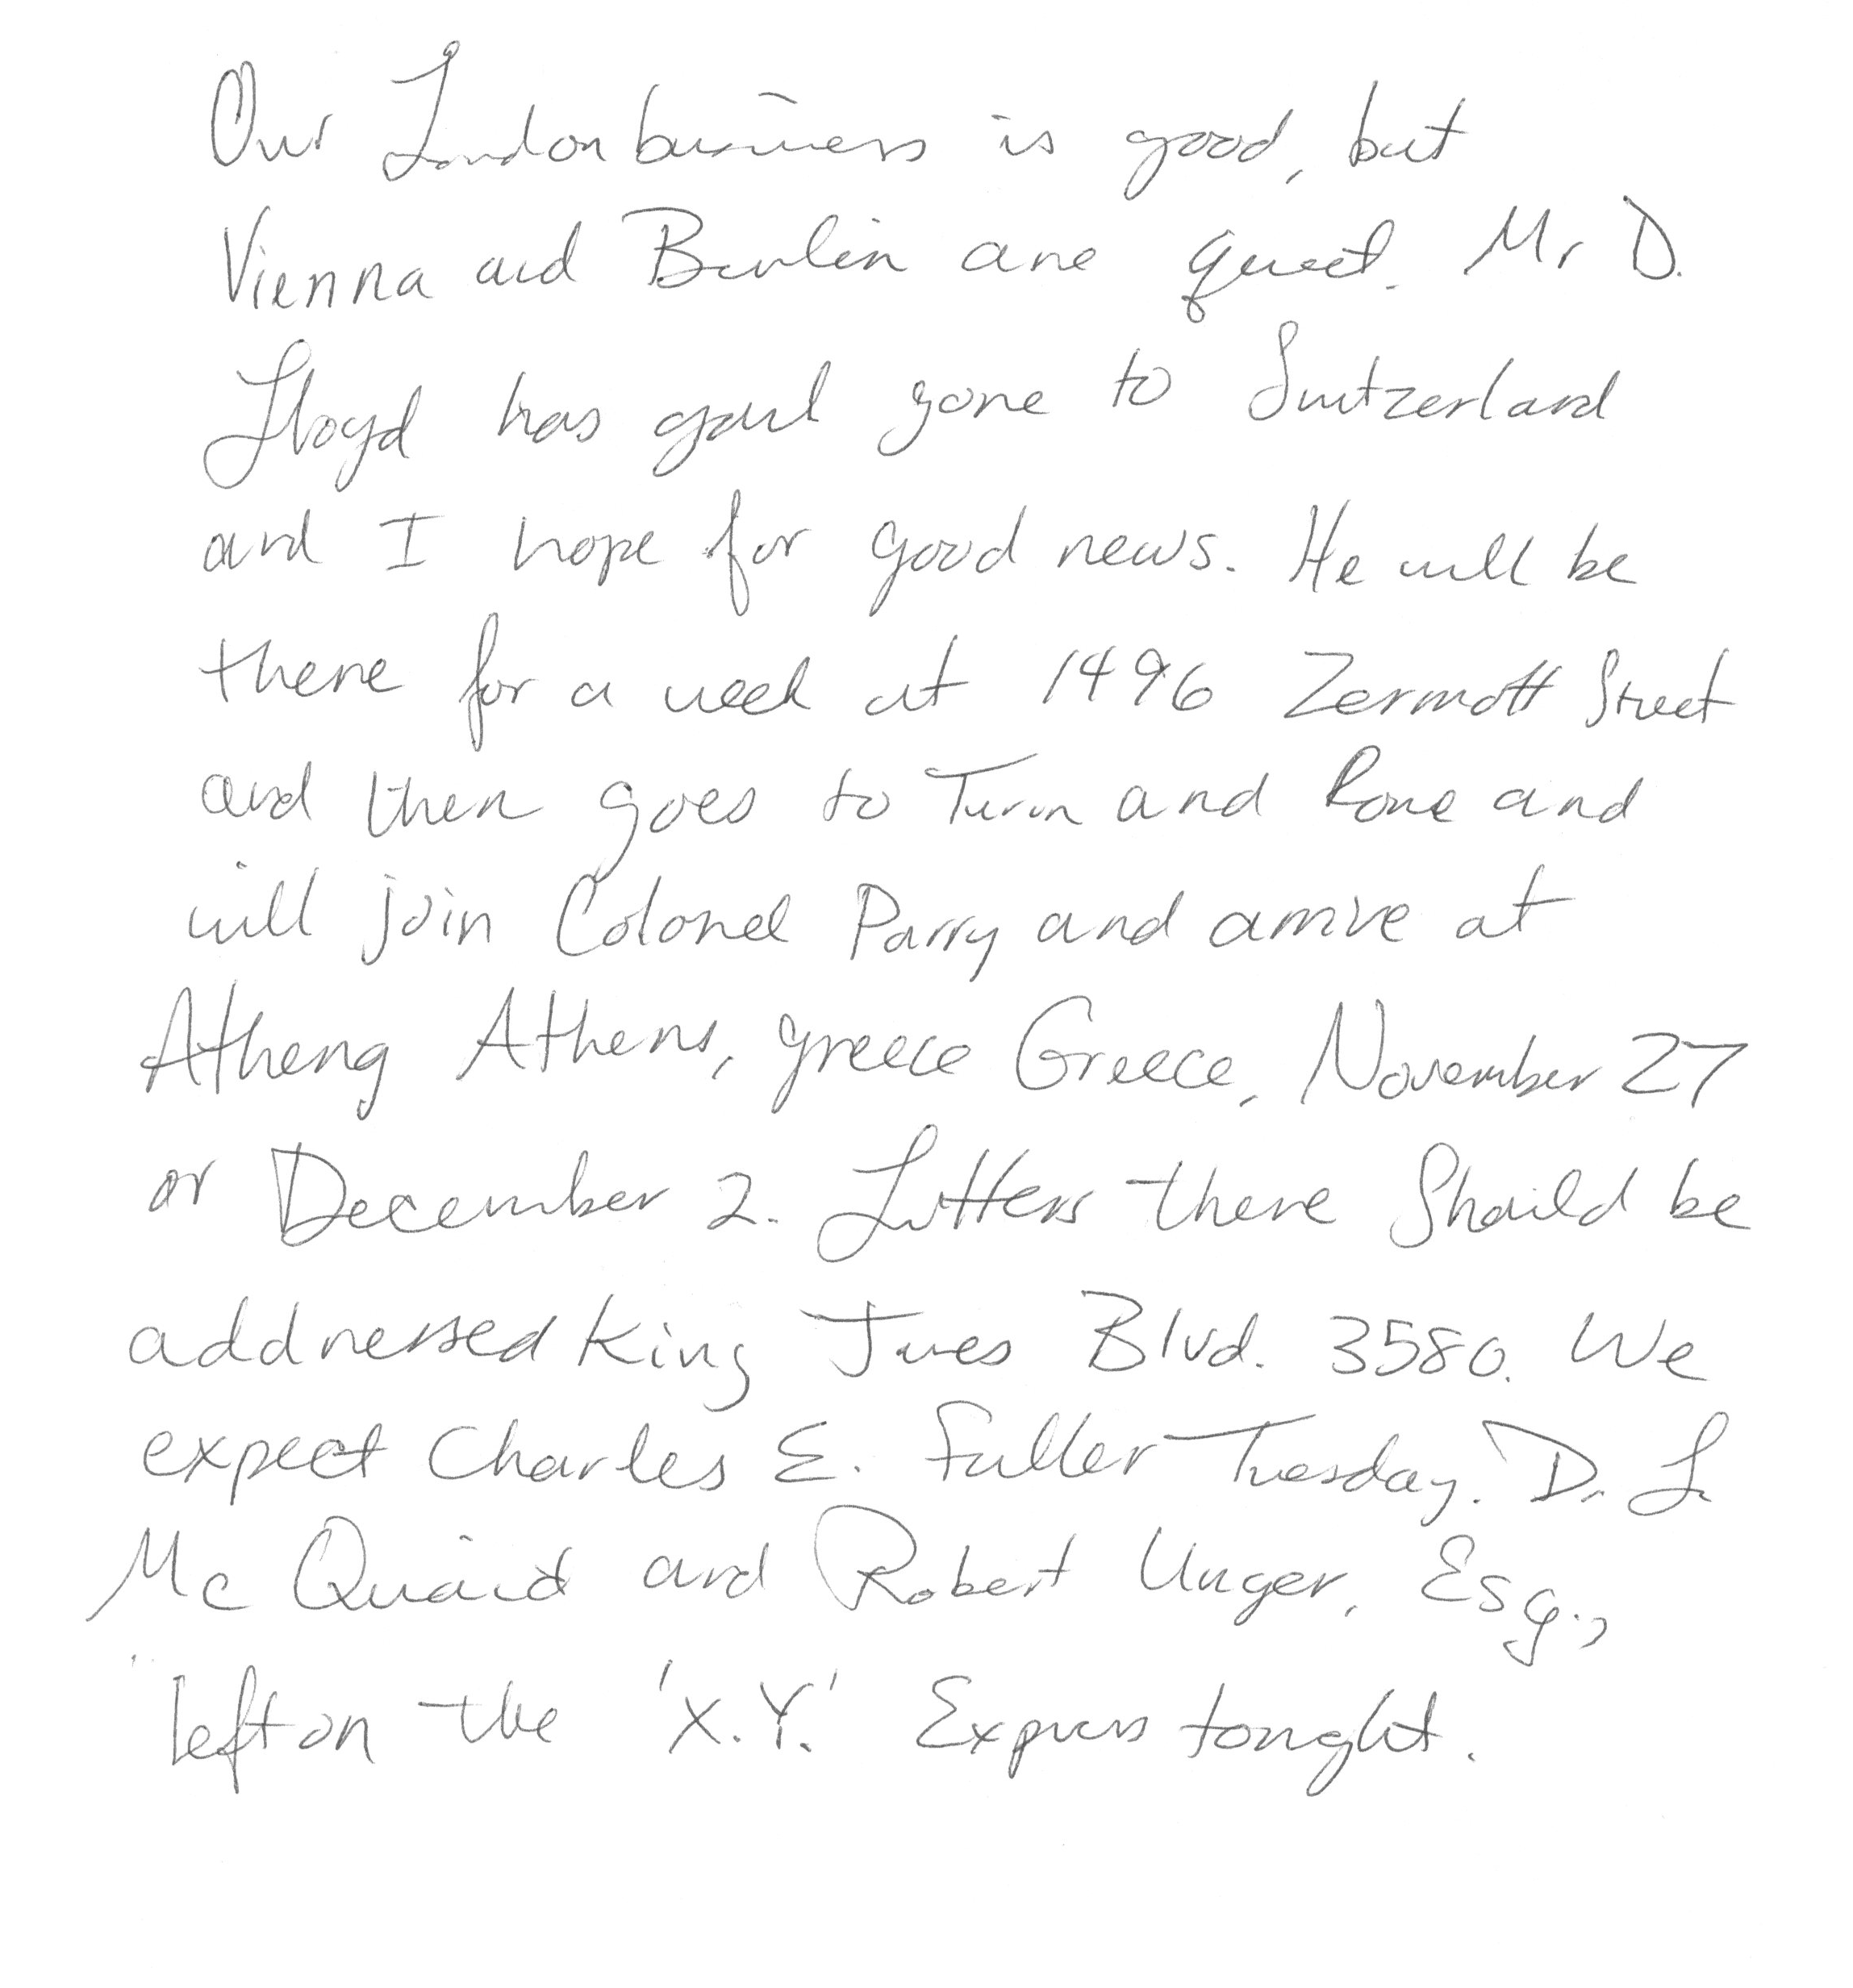 Our London business is good, but
Vienna and Berlin are quiet. Mr D.
Lloyd has gone to Switzerland
and I hope for good news. He will be
there for a week at 1496 Zermott Street
and then goes to Turin and Rome and
will join Colonel Parry and arrive at
Atheng Athens, greece Greece, November 27
or December 2. Letters there Should be
addressed King James Blvd. 3580. We
expect Charles E. Fuller Tuesday. Dr. L
Mc Quaid and Robert Unger, Esq.,
left on the 'X.Y.' Express tonight.